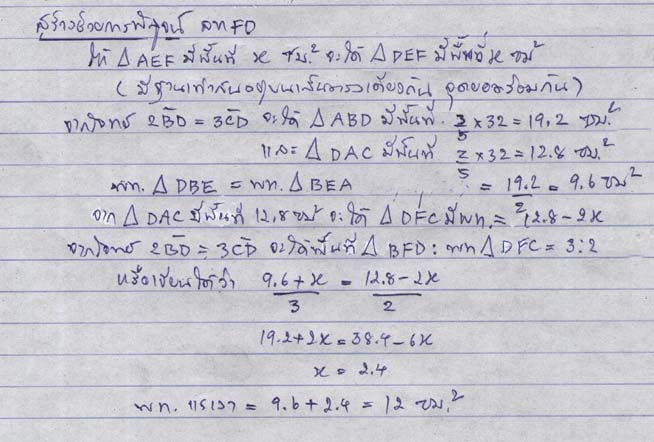 สร้างด้วยการพิสูจน์ ลาก FD
ให้ △ AEF มีพื้นที่ x ซม.² จะได้ △ DEF มีพื้นที่ x ซม²
(มีฐานเท่ากันอยู่บนเส้นตรงเดียวกัน จุดยอดร่วมกัน)
จากโจทย์ 2BD = 3CD จะได้ △ ABD มีพื้นที่ 3/5 × 32 = 19.2 ซม.²
และ △ DAC มีพื้นที่ 2/5 × 32 = 12.8 ซม.²
พท. △ DBE = พท. △ BEA = 19.2/2 = 9.6 ซม²
จาก △ DAC มีพื้นที่ 12.8 ซม² จะได้ △ DFC มีพท. = 12.8 - 2x
จากโจทย์ 2BD = 3CD จะได้พื้นที่ △ BFD : พท △ DFC = 3:2
หรือเขียนได้ว่า (9.6 + x)/3 = (12.8 - 2x)/2
19.2 + 2x = 38.4 - 6x
x = 2.4
พท. แรเงา = 9.6 + 2.4 = 12 ซม.²